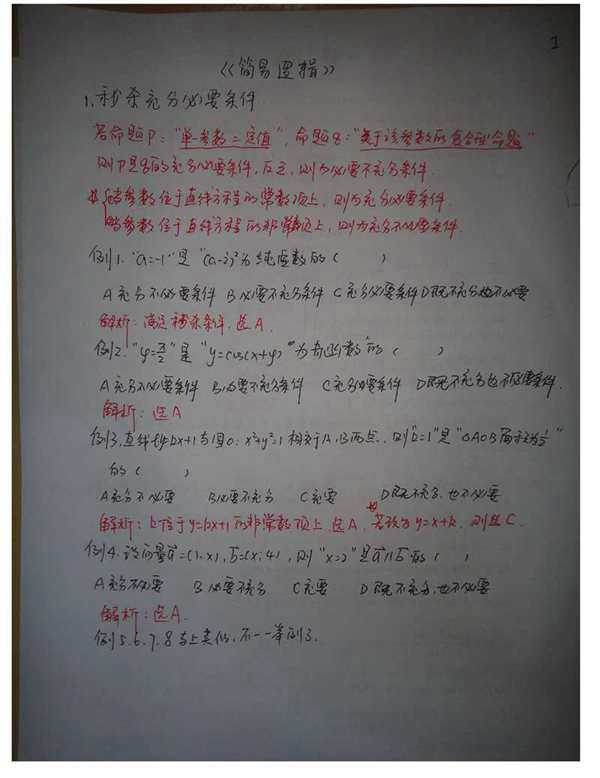 1
《简易逻辑》
1.秒杀充分必要条件
若命题p:"单一参数=定值",命题q:"关于该参数的包含性命题"
则p是q的充分必要条件,反之,则为必要不充分条件.
若参数位于直线方程的常数项上,则为充分必要条件.
若参数位于直线方程的非常数项上,则为充分不必要条件.
例1."a=-1"是"(a-i)²为纯虚数的( )
A 充分不必要条件 B 必要不充分条件 C 充分必要条件 D 既不充分也不必要
解析:满足秒杀条件.选A.
例2."φ=π/2"是"y=cos(x+φ)为奇函数"的( )
A 充分不必要条件 B 必要不充分条件 C 充分必要条件 D 既不充分也不必要条件.
解析:选A
例3.直线l:y=kx+1与圆O:x²+y²=1相交于A,B两点,则"k=1"是"△AOB面积为½"
的( )
A 充分不必要 B 必要不充分 C 充要 D 既不充分,也不必要
解析:k位于y=kx+1的非常数项上,选A.若改为y=x+k,则选C.
例4.设向量a=(1,x),b=(x,4),则"x=2"是a∥b的( )
A 充分不必要 B 必要不充分 C 充要 D 既不充分,也不必要
解析:选A.
例5.6.7.8与上类似,不一一举例了.